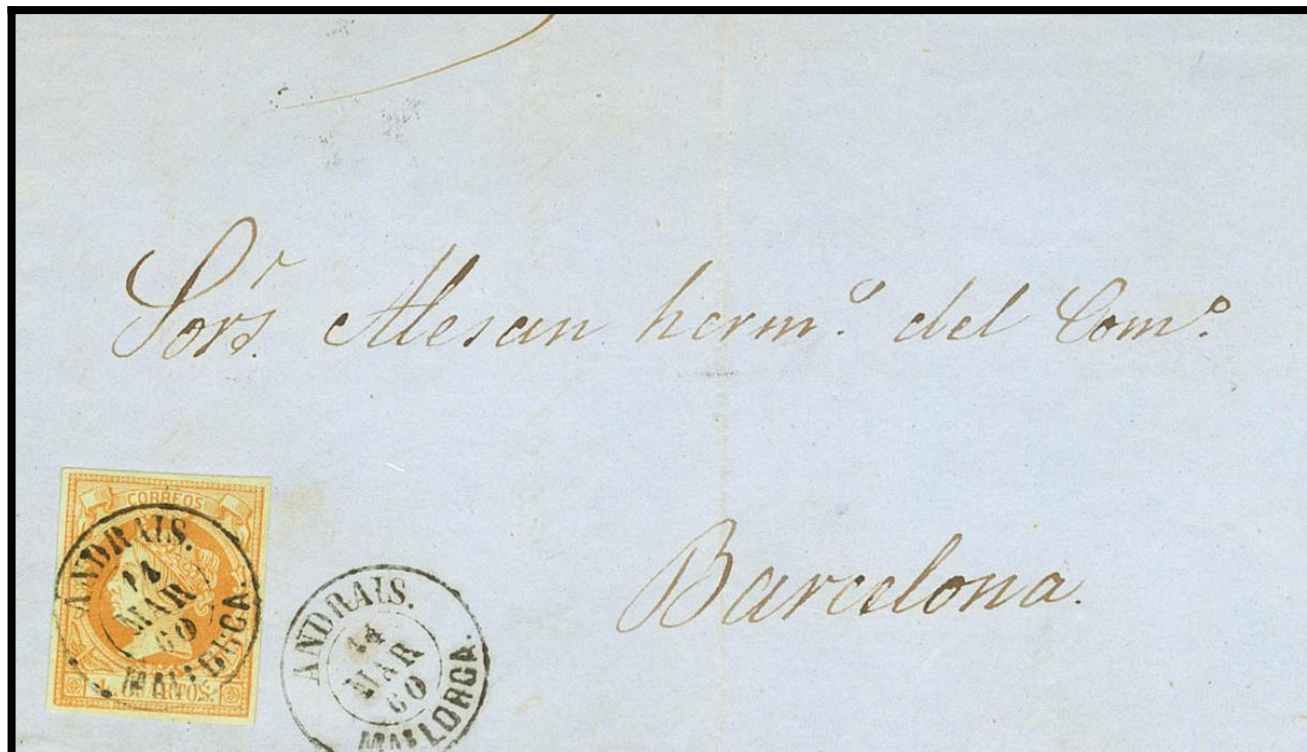 Sors. Alesan herm.º del Com.º
Barcelona.
CORREOS
ANDRAIS.
MAR
60
MALLORCA.
4 CUARTOS.
ANDRAIS.
14
MAR
60
MALLORCA.